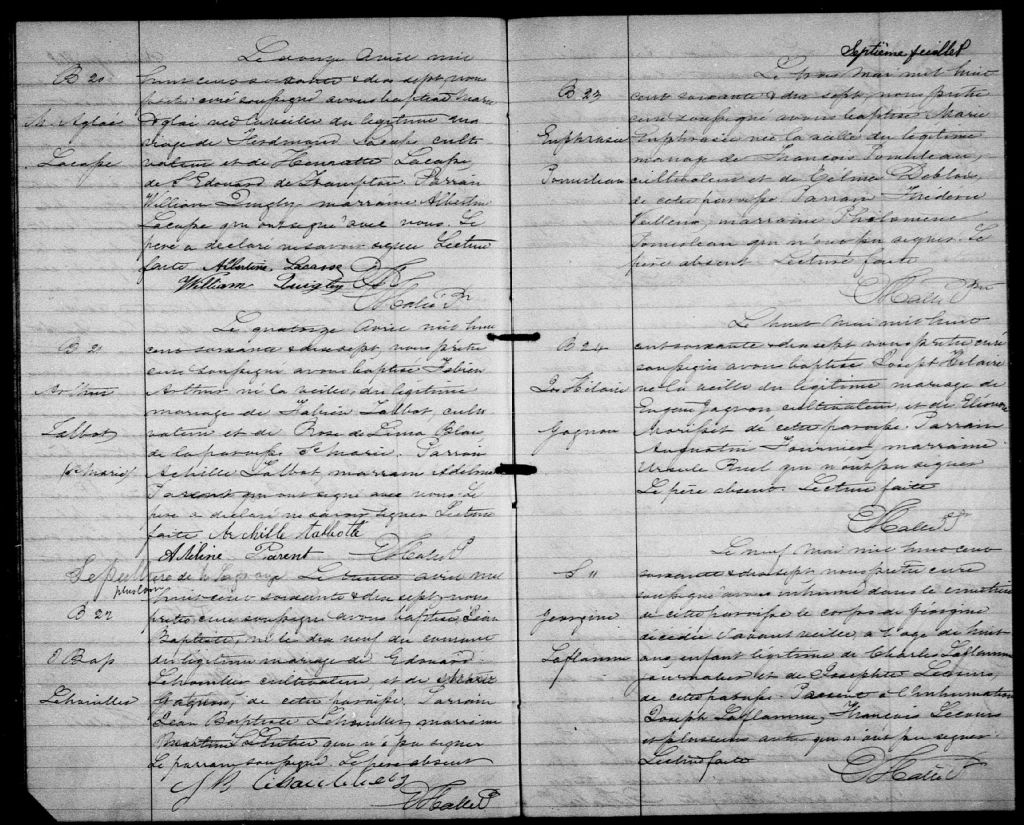 B 20
M. Aglaé
Lacasse
Le onze Avril mil
huit cent soixante & dix sept, nous
prêtre curé soussigné avons baptisé Marie
Aglaé née la veille du légitime ma
riage de Ferdinand Lacasse culti
vateur et de Henriette Lacasse
de St Edouard de Frampton. Parrain
William Quigly, marraine Albertine
Lacasse qui ont signé avec nous. Le
père a déclaré ne savoir signer. Lecture
faite Albertine Lacasse
William Quigley
B 21
Arthur
Talbot
Ste Marie
Le quatorze Avril mil huit
cent soixante & dix sept, nous prêtre
curé soussigné avons baptisé Fabien
Arthur né la veille du légitime
mariage de Fabien Talbot, culti
vateur et de Rose de Lima
de la paroisse Ste Marie. Parrain
Achille Talbot, marraine Adeline
Parent qui ont signé avec nous. Le
père a déclaré ne savoir signer Lecture
faite Archille talboth
Adeline Parent
Sepulture de
plus loin
B 22
J Bap
Lehouilles
avril mil
huit cent soixante & dix sept, nous
prêtre curé soussigné avons baptisé Jean
Baptiste, né le dix neuf du courant
du légitime mariage de Edouard
cultivateur et de
Gagnon, de cette paroisse. Parrain
Jean Baptiste marraine
qui n'a pu signer
Le parrain soussigné Le père absent
J B
Septième feuillet
B 23
Euphrasie
Pomerleau
Le trois Mai mil huit
cent soixante & dix sept, nous prêtre
curé soussigné avons baptisé Marie
Euphrasie née la veille du légitime
mariage de François Pomerleau,
cultivateur et de Zelma Deblois,
de cette paroisse. Parrain Frederic
Veilleux, marraine Philomene
Pomerleau qui n'ont pu signer. Le
père absent Lecture faite
B 24
Jos Hilaire
Gagnon
Le huit Mai mil huit
cent soixante & dix sept nous prêtre curé
soussigné avons baptisé Joseph Hilaire
né la veille du légitime mariage de
Eugene Gagnon cultivateur, et de Eléonore
de cette paroisse. Parrain
Augustin Fournier, marraine
Ursule Ruel qui n'ont pu signer
Le père absent. Lecture faite
S "
Georgine
Laflamme
Le neuf Mai mil huit cent
soixante & dix sept nous prêtre curé
soussigné avons inhumé dans le cimetière
de cette paroisse le corps de Georgine
décédée l'avant veille à l'age de huit
ans enfant légitime de Charles Laflamme
journalier et de Josephte Lecours,
de cette paroisse. Présent à l'inhumation
Joseph Laflamme, François Lecours
et plusieurs autres qui n'ont pu signer
Lecture faite